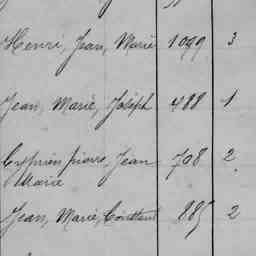 Henri, Jean, Marie 1099 3
Jean, Marie, Joseph 488 1
Cyprien pierre, Jean 708 2
Marie
Jean, Marie, Constant 885 2